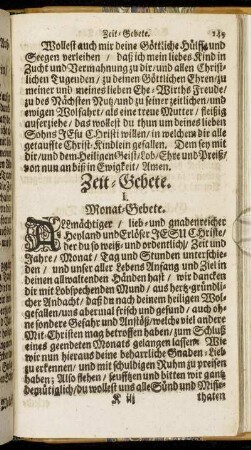 Zeit-Gebete. 149
Wollest auch mir deine Göttliche Hülff und
Seegen verleihen / daß ich mein liebes Kind in
Zucht und Vermahnung zu dir und allen Christ-
lichen Tugenden / zu deinen Göttlichen Ehren / zu
meiner und meines lieben Ehe-Wirths Freude /
zu des Nächsten Nutz / und zu seiner zeitlichen / und
ewigen Wolfahrt / als eine treue Mutter / fleißig
auferziehe / das wollest du thun um deines lieben
Sohns JEsu Christi willen / in welchem dir alle
getauffte Christ-Kindlein gefallen. Dem sey mit
dir / und dem Heiligen Geist / Lob / Ehre und Preiß /
von nun an biß in Ewigkeit / Amen.
Zeit-Gebete.
I.
Monat-Gebete.
Allmächtiger / lieb- und gnadenreicher
Heyland und Erlöser JESU Christe /
der du so weiß- und ordentlich / Zeit und
Jahre / Monat / Tag und Stunden unterschie-
den / und unser aller Lebens Anfang und Ziel in
deinen allwaltenden Händen hast / wir dancken
dir mit Lobsprechendem Mund / aus hertz-gründli-
cher Andacht / daß du nach deinem heiligen Wol-
gefallen / uns abermal frisch und gesund / auch oh-
ne sondere Gefahr und Anstöß / welche viel andere
Mit-Christen mag betroffen haben / zum Schluß
eines geendeten Monats gelangen lassen. Wie
wir nun hieraus deine beharrliche Gnaden-Lieb
zu erkennen / und mit schuldigen Ruhm zu preisen
haben; Also flehen / seufftzen und bitten wir gantz
demütiglich / du wollest uns alle Sünd und Misse-
K iij thaten